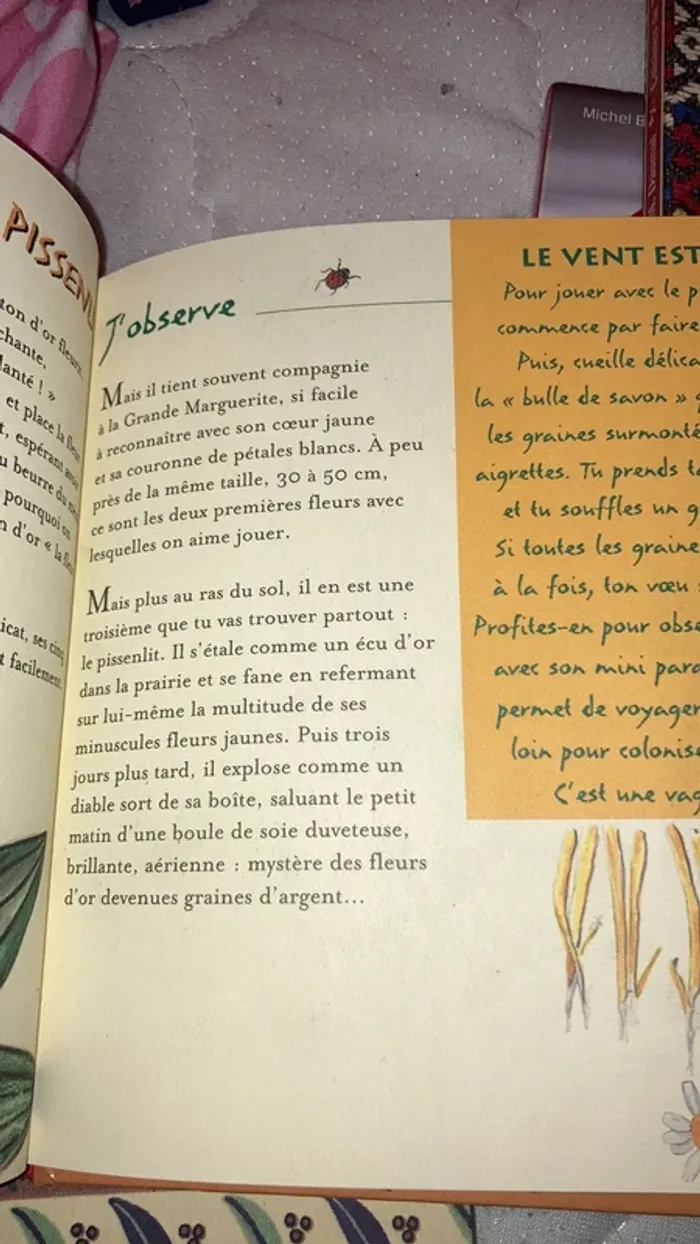 Michel B
PISSENL
ton d'or fleuri,
chante,
lanté ! »
et place la fleur
t, espérant
u beurre du
pourquoi on
n d'or « la fleu
icat, ses cinq
t facilement.
J'observe
Mais il tient souvent compagnie
à la Grande Marguerite, si facile
à reconnaître avec son cœur jaune
et sa couronne de pétales blancs. À peu
près de la même taille, 30 à 50 cm,
ce sont les deux premières fleurs avec
lesquelles on aime jouer.
Mais plus au ras du sol, il en est une
troisième que tu vas trouver partout :
le pissenlit. Il s'étale comme un écu d'or
dans la prairie et se fane en refermant
sur lui-même la multitude de ses
minuscules fleurs jaunes. Puis trois
jours plus tard, il explose comme un
diable sort de sa boîte, saluant le petit
matin d'une boule de soie duveteuse,
brillante, aérienne : mystère des fleurs
d'or devenues graines d'argent...
LE VENT EST
Pour jouer avec le p
commence par faire
Puis, cueille délica
la « bulle de savon » q
les graines surmonté
aigrettes. Tu prends t
et tu souffles un g
Si toutes les graine
à la fois, ton vœu
Profites-en pour obse
avec son mini para
permet de voyager
loin pour colonise
C'est une vag